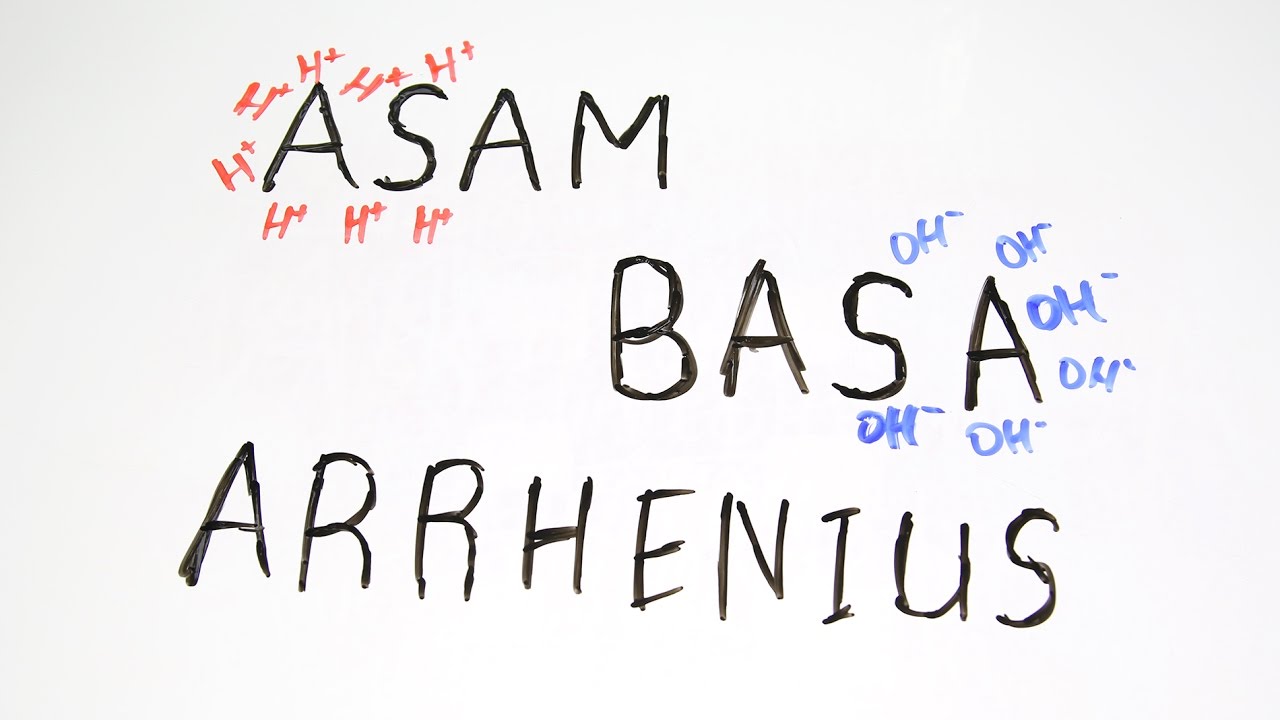 H⁺ H⁺ H⁺ H⁺
H⁺ ASAM
H⁺ H⁺ H⁺
OH⁻ OH⁻
BASA OH⁻
OH⁻
OH⁻ OH⁻
ARRHENIUS